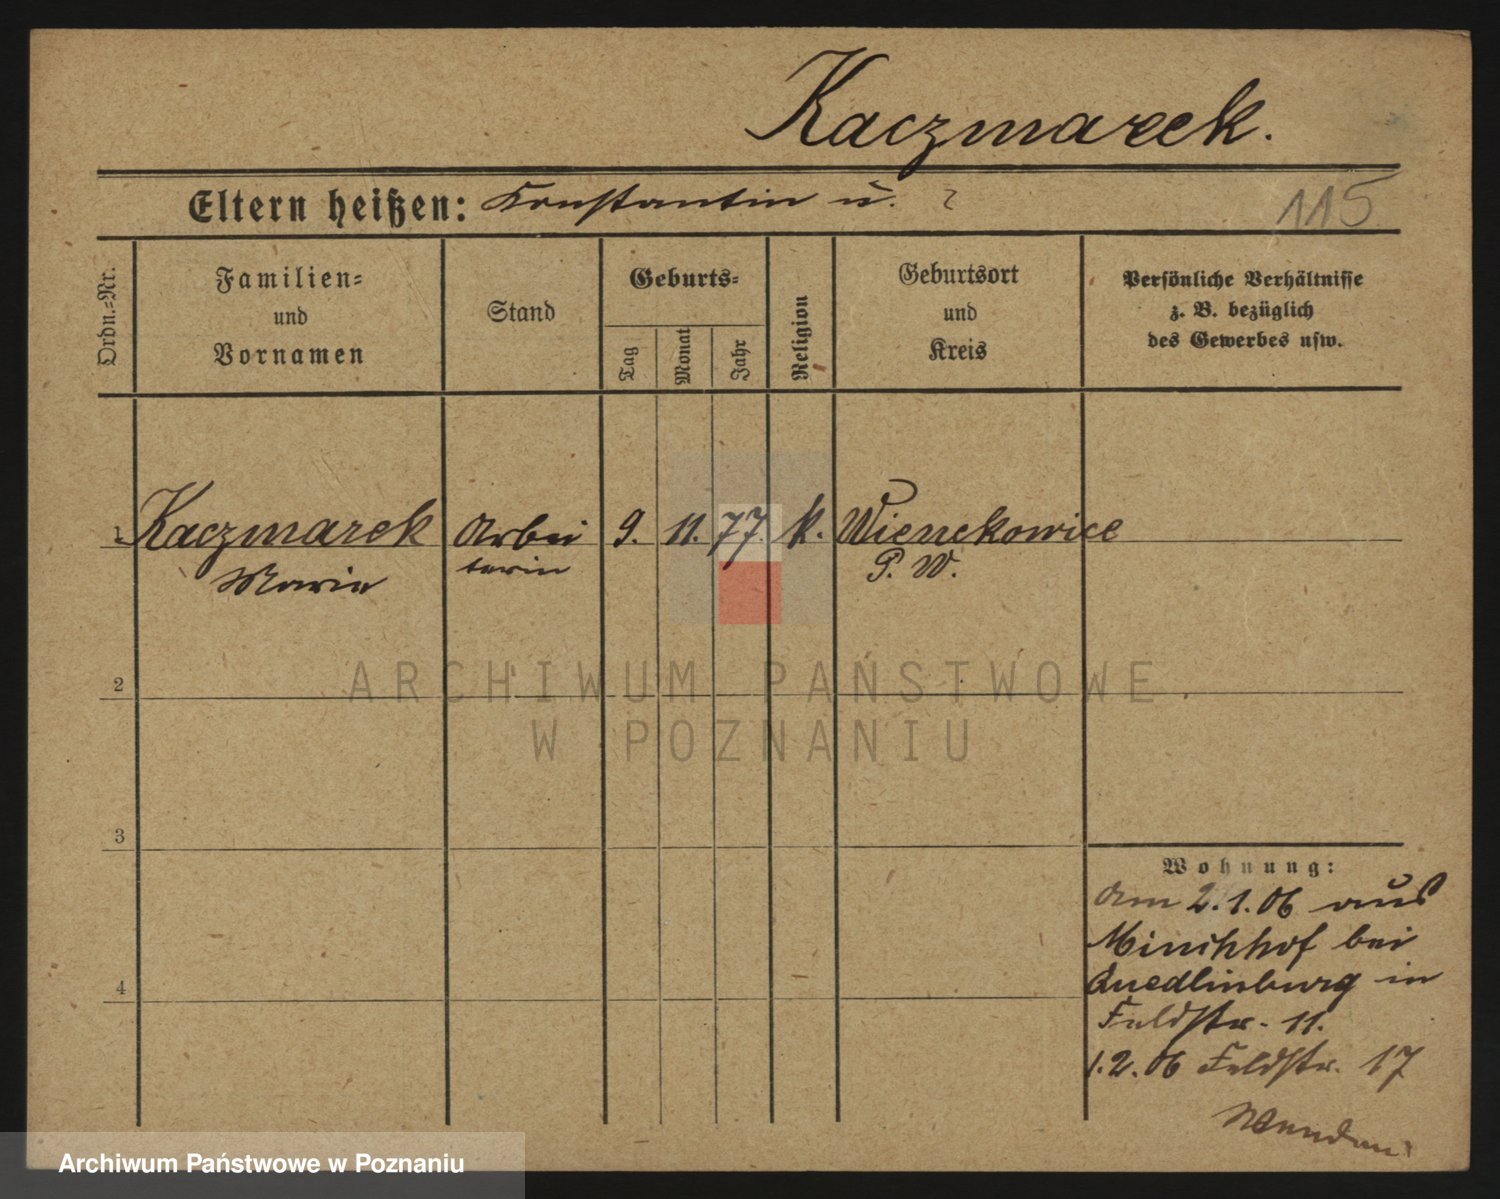 Kaczmarek.
Eltern heißen: Konstantin u. ?
115
Ordn.-Nr.
Familien-
und
Vornamen
Stand
Geburts-
Tag
Monat
Jahr
Religion
Geburtsort
und
Kreis
Persönliche Verhältnisse
z. B. bezüglich
des Gewerbes usw.
1 Kaczmarek Arbei 9. 11. 77. k. Wienckowice
Marie terin P. W.
2
ARCHIWUM PAŃSTWOWE
W POZNANIU
3
Wohnung:
Am 2.1.06 aus
bei
Quedlinburg in
Feldstr. 11.
4
1.2.06 Feldstr. 17
Archiwum Państwowe w Poznaniu